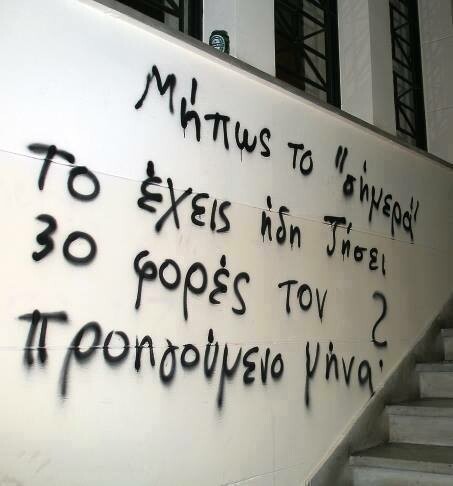 Μήπως το "σήμερα"
Το έχεις ήδη ζήσει
30 φορές τον
προηγούμενο μήνα;